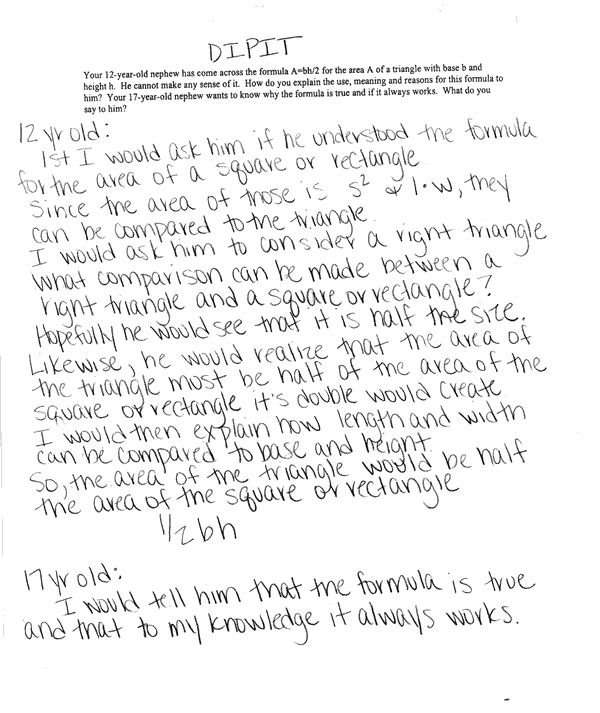 DIPIT
Your 12-year-old nephew has come across the formula A=bh/2 for the area A of a triangle with base b and
height h. He cannot make any sense of it. How do you explain the use, meaning and reasons for this formula to
him? Your 17-year-old nephew wants to know why the formula is true and if it always works. What do you
say to him?
12 yr old:
1st I would ask him if he understood the formula
for the area of a square or rectangle
Since the area of those is s² & l·w, they
can be compared to the triangle.
I would ask him to consider a right triangle
What comparison can be made between a
right triangle and a square or rectangle?
Hopefully he would see that it is half the size.
Likewise, he would realize that the area of
the triangle must be half of the area of the
square or rectangle it's double would create.
I would then explain how length and width
can be compared to base and height.
So, the area of the triangle would be half
the area of the square or rectangle
1/2 bh
17 yr old:
I would tell him that the formula is true
and that to my knowledge it always works.